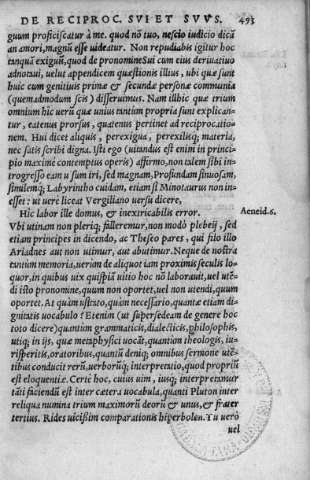 DE RECIPROC. SVI ET SVVS. 493
guum proficiscatur à me. quod nō tuo, nescio iudicio dicā
an amori, magnū esse uideatur. Non repudiabis igitur hoc
tanquā exiguū, quod de pronomine Sui cum eius deriuatiuo
adnotaui, uelut appendicem quæstionis illius, ubi quæ sunt
huic cum genitiuis primæ & secundæ personæ communia
(quemadmodum scis) disseruimus. Nam illhic quæ trium
omnium hic uerū quæ unius tantum propria sunt explican-
tur, eatenus prorsus, quatenus pertinet ad reciprocatio-
nem. Hui dicet aliquis, perexigua, perexilisq; materia,
nec satis scribi digna. Isti ego (uitandus est enim in princi-
pio maximè contemptus operis) affirmo, non talem sibi in-
trogresso eam uisum iri, sed magnam, Profundam sinuosam,
similemq; Labyrintho cuidam, etiam si Minotaurus non in-
esset: ut uerè liceat Vergiliano uersu dicere,
Hic labor ille domus, & inextricabilis error. Aeneid. 6.
Vbi utinam non pleriq; falleremur, non modò plebeij, sed
etiam principes in dicendo, ac Theseo pares, qui filo illo
Ariadnes aut non uimur, aut abutimur. Neque de nostra
tantum memoria, uerùm de aliquot iam proximis seculis lo-
quor, in quibus uix quispiā uitio hoc nō laborauit, uel utē-
di isto pronomine, quum non oportet, uel non utendi, quum
oportet. At quàm usitato, quàm necessario, quantæ etiam di-
gnitatis uocabulo? Etenim (ut supersedeam de genere hoc
toto dicere) quantùm grammaticis, dialecticis, philosophis,
utiq; in ijs, quæ metaphysici uocāt, quantùm theologis, iu-
risperitis, oratoribus, quantū deniq; omnibus sermone utē-
tibus conducit rerū, uerborūq; interpretatio, quod propriū
est eloquentiæ. Certè hoc, cuius uim, iusq; interpretamur
tāti faciendū est inter cætera uocabula, quanti Pluton inter
reliqua numina trium maximorū deorū & unus, & frater
tertius. Rides uicissim comparationis hiperbolen. Tu uerò
uel